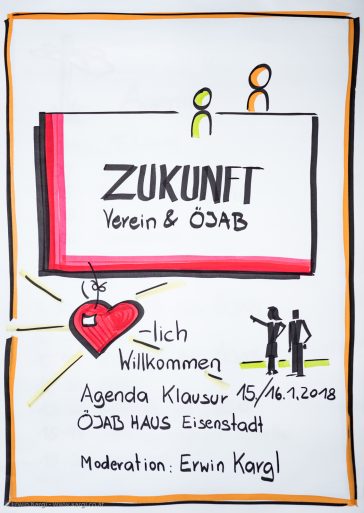 ZUKUNFT
Verein & ÖJAB
-lich
Willkommen
Agenda Klausur 15./16.1.2018
ÖJAB HAUS Eisenstadt
Moderation: Erwin Kargl